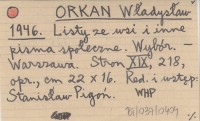 ORKAN Władysław
1946. Listy ze wsi i inne
pisma społeczne. Wybór. —
Warszawa. Stron XIX, 218,
opr., cm 22 x 16. Red. i wstęp:
Stanisław Pigoń. WHP
BI/039/0404